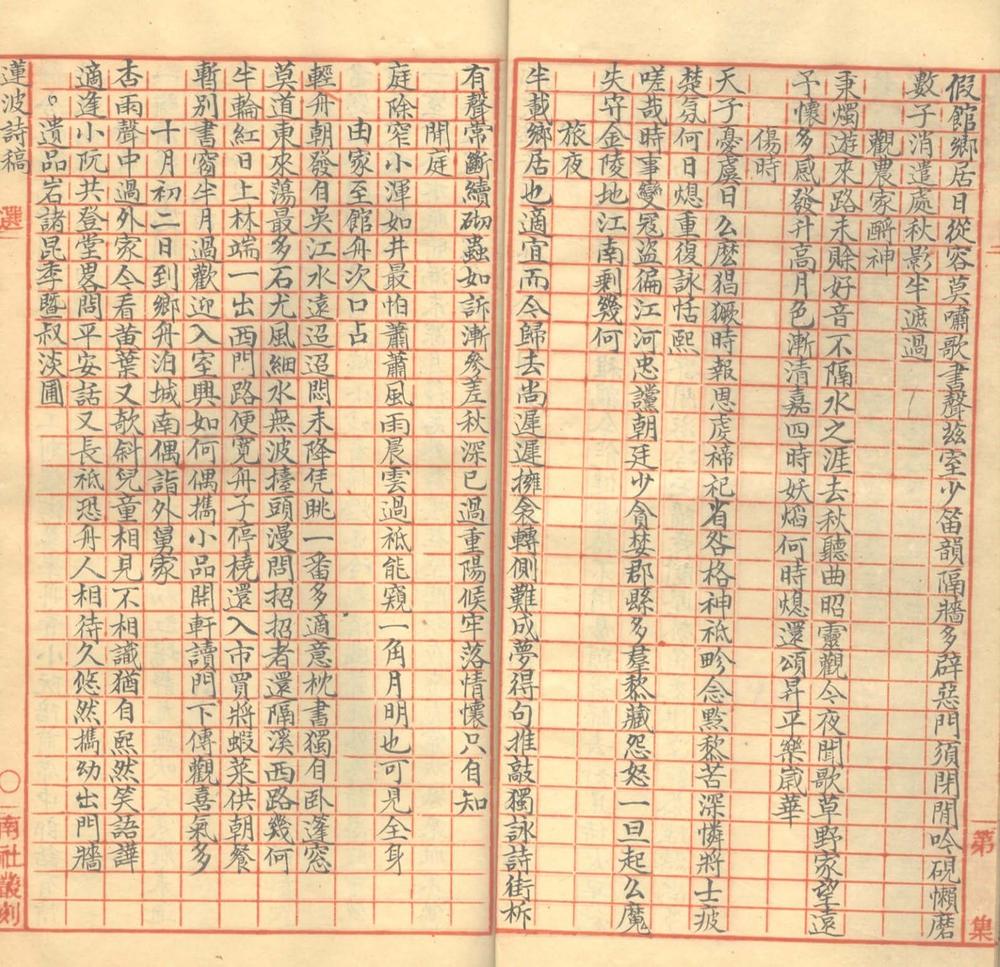 第 集
假館鄉居日從容莫嘯歌書聲茲室少笛韻隔牆多辟惡門須閉閒吟硯懶磨
數子消遣處秋影半遮過
觀農家酧神
秉燭遊來路未賖好音不隔水之涯去秋聽曲昭靈觀今夜聞歌草野家望遠
予懷多感發升高月色漸清嘉四時妖燄何時熄還頌昇平樂歲華
傷時
天子憂虞日么麽猖獗時報恩虔禘祀省咎格神祇畛念黔黎苦深憐將士疲
楚氛何日熄重復詠恬熙
嗟哉時事變冦盜徧江河忠讜朝廷少貪婪郡縣多羣黎藏怨怒一旦起么魔
失守金陵地江南剩幾何
旅夜
半載鄉居也適宜而今歸去尚遲遲擁衾轉側難成夢得句推敲獨詠詩街柝
有聲常斷續砌蟲如訴漸參差秋深已過重陽候牢落情懷只自知
閒庭
庭除窄小渾如井最怕蕭蕭風雨晨雲過祗能窺一角月明也可見全身
由家至館舟次口占
輕舟朝發自吳江水遠迢迢悶未降凭眺一番多適意枕書獨自卧蓬窓
莫道東來蕩最多石尤風細水無波擡頭漫問招招者還隔溪西路幾何
半輪紅日上林端一出西門路便寬舟子停橈還入市買將蝦菜供朝餐
暫別書窗半月過歡迎入室興如何偶攜小品開軒讀門下傳觀喜氣多
十月初二日到鄉舟泊城南偶詣外舅家
杏雨聲中過外家今看黄葉又欹斜兒童相見不相識猶自熙然笑語譁
適逢小阮共登堂畧問平安話又長祗恐舟人相待久悠然攜幼出門牆
遺品岩諸昆季暨叔淡圃
蓮波詩稿 選 南社叢刻